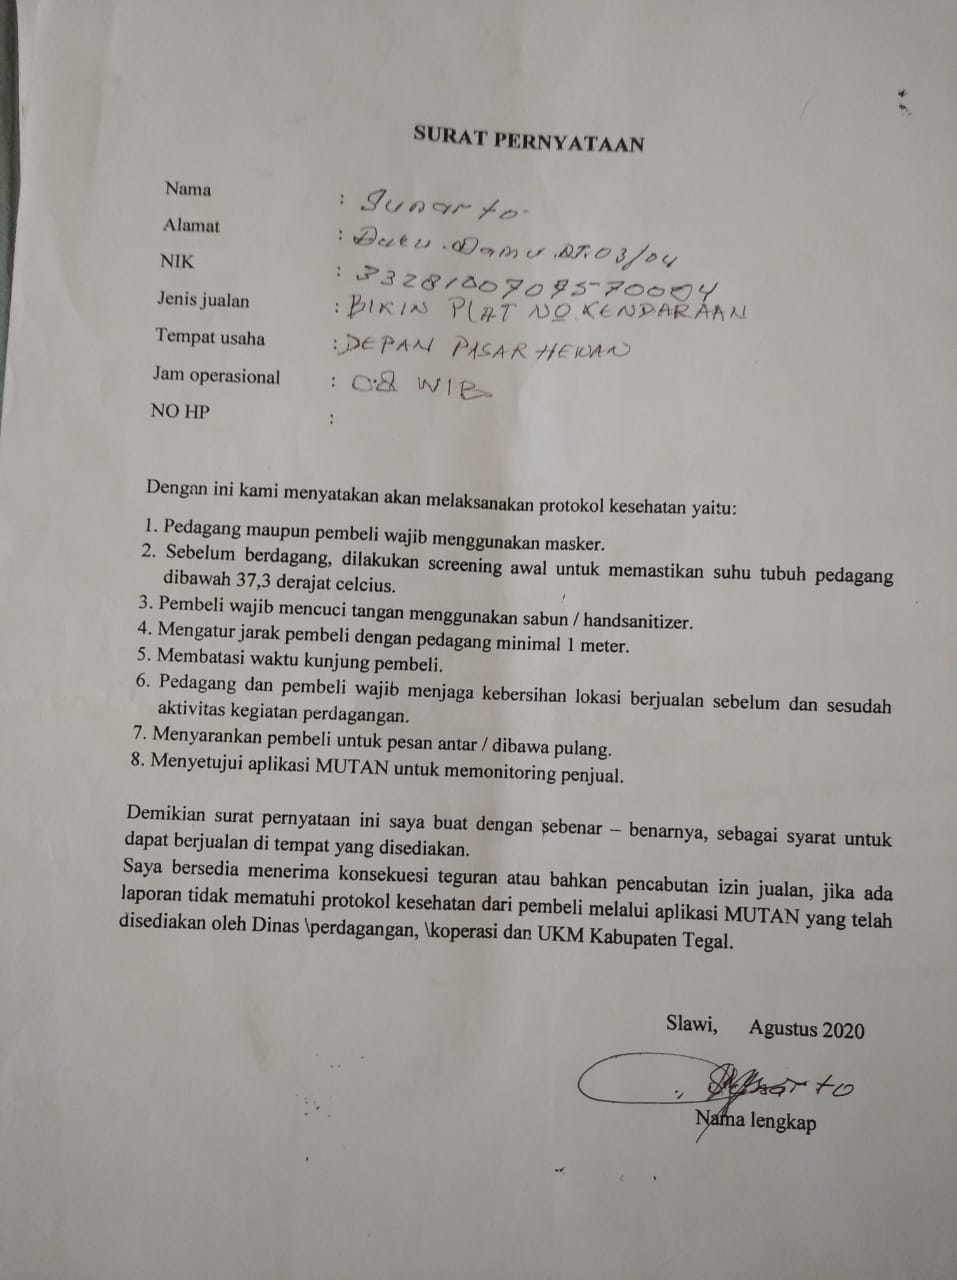 SURAT PERNYATAAN
Nama : Sunarto
Alamat : Duku Damu RT 03/04
NIK : 3328100709570004
Jenis jualan : BIKIN PLAT NO. KENDARAAN
Tempat usaha : DEPAN PASAR HEWAN
Jam operasional : 08 WIB
NO HP :
Dengan ini kami menyatakan akan melaksanakan protokol kesehatan yaitu:
1. Pedagang maupun pembeli wajib menggunakan masker.
2. Sebelum berdagang, dilakukan screening awal untuk memastikan suhu tubuh pedagang
dibawah 37,3 derajat celcius.
3. Pembeli wajib mencuci tangan menggunakan sabun / handsanitizer.
4. Mengatur jarak pembeli dengan pedagang minimal 1 meter.
5. Membatasi waktu kunjung pembeli.
6. Pedagang dan pembeli wajib menjaga kebersihan lokasi berjualan sebelum dan sesudah
aktivitas kegiatan perdagangan.
7. Menyarankan pembeli untuk pesan antar / dibawa pulang.
8. Menyetujui aplikasi MUTAN untuk memonitoring penjual.
Demikian surat pernyataan ini saya buat dengan sebenar – benarnya, sebagai syarat untuk
dapat berjualan di tempat yang disediakan.
Saya bersedia menerima konsekuesi teguran atau bahkan pencabutan izin jualan, jika ada
laporan tidak mematuhi protokol kesehatan dari pembeli melalui aplikasi MUTAN yang telah
disediakan oleh Dinas \perdagangan, \koperasi dan UKM Kabupaten Tegal.
Slawi, Agustus 2020
Sunarto
Nama lengkap